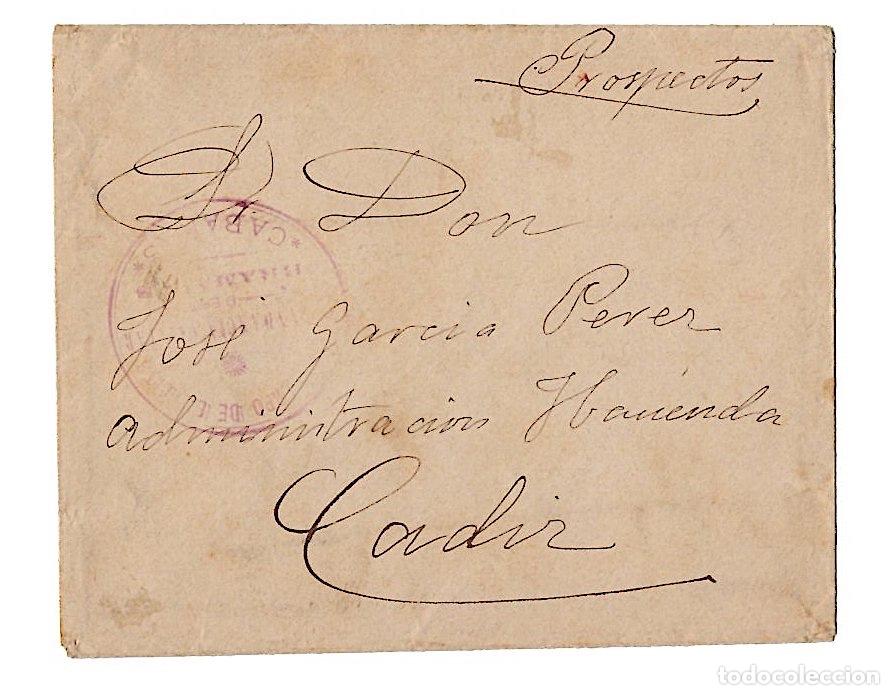 Prospectos
Sr Don
José Garcia Perez
Administracion Hacienda
Cadiz
todocoleccion